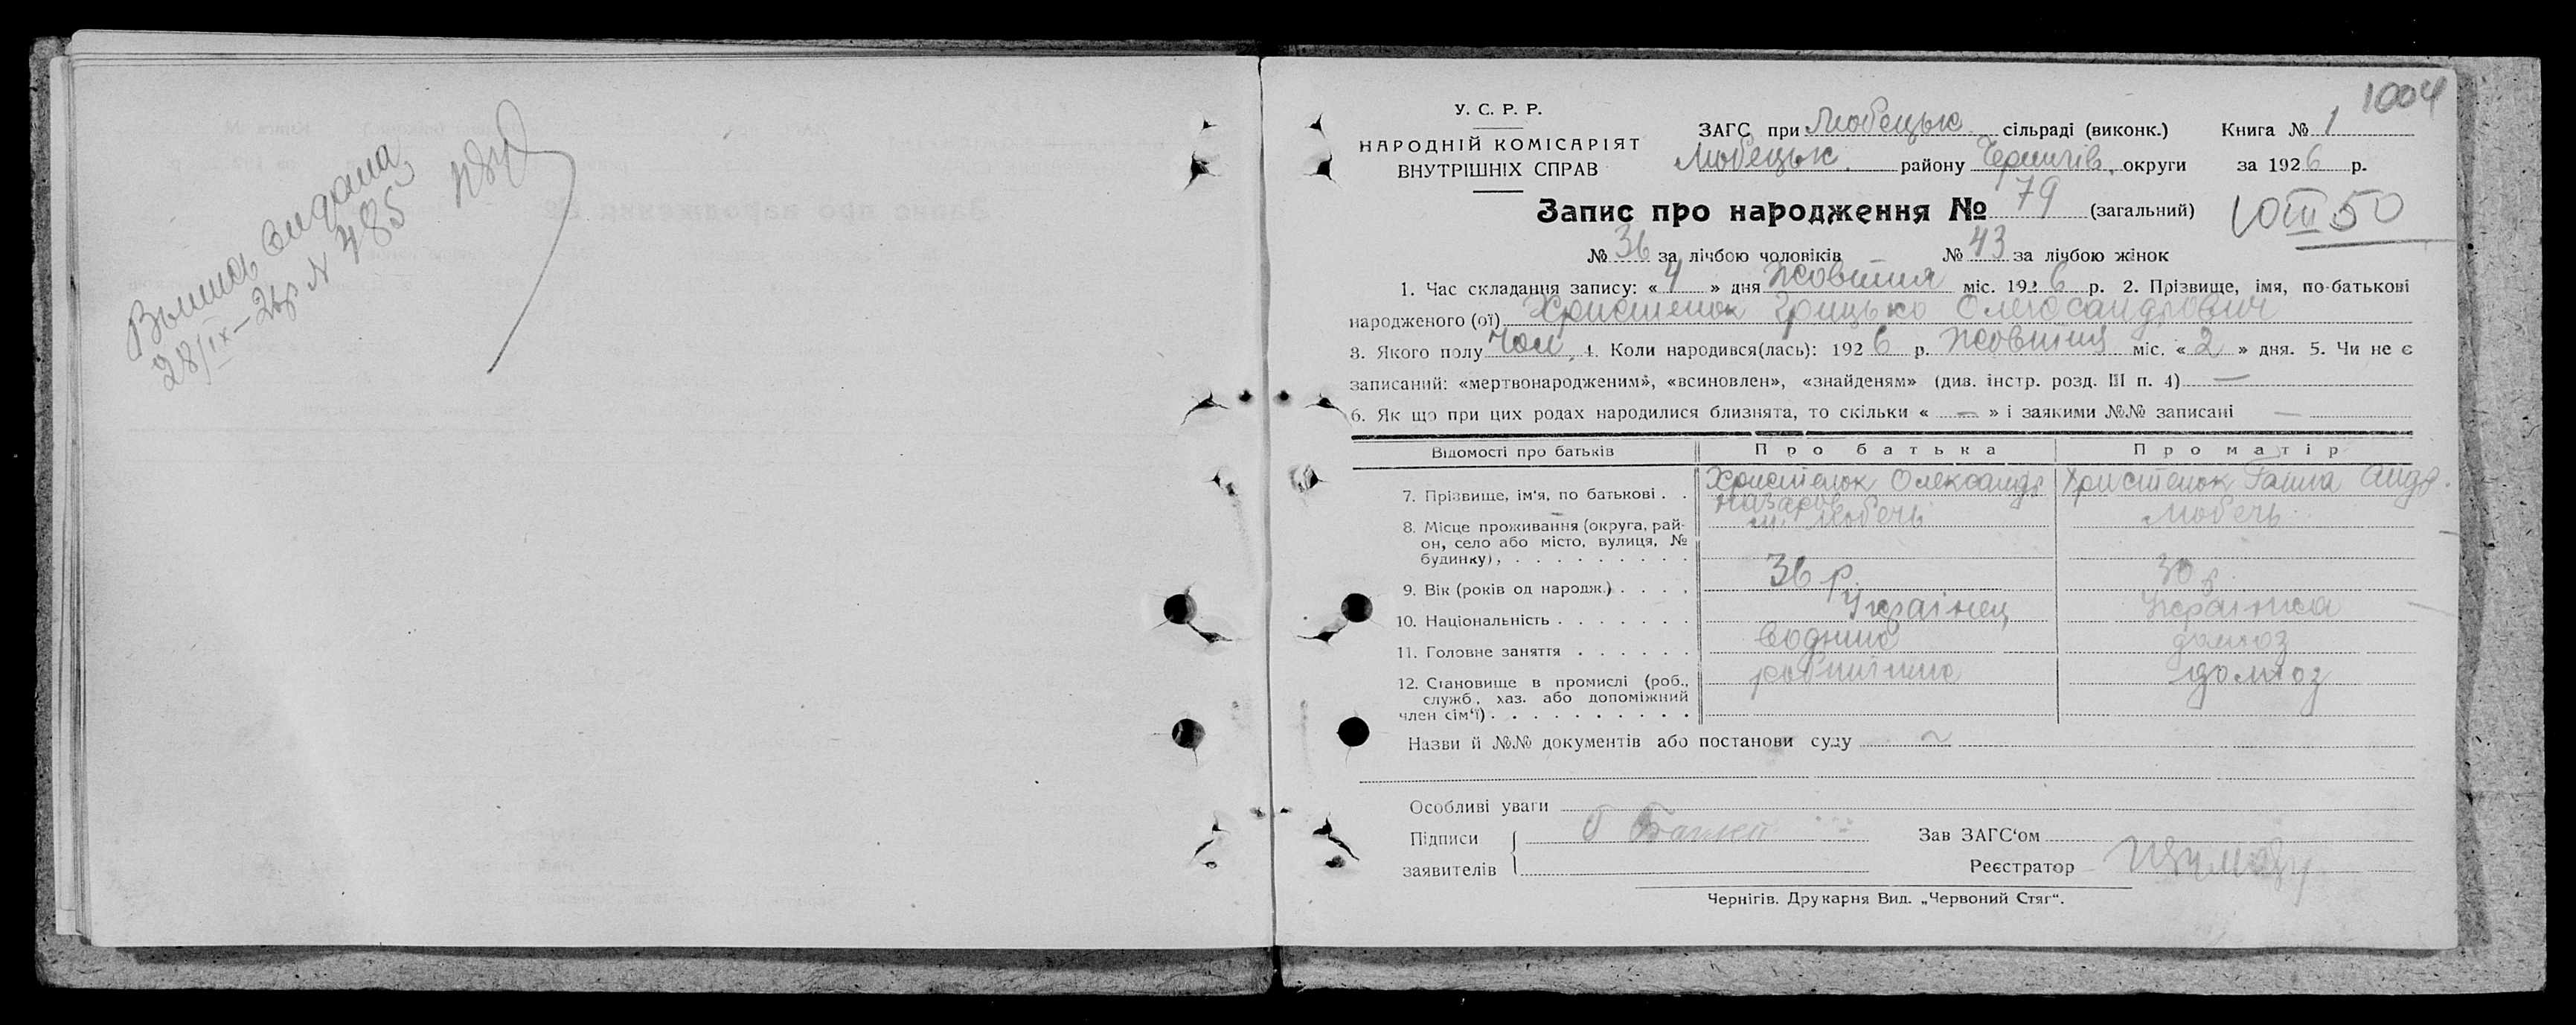 Выпись выдана
28/IX–26р N 485
1004
У. С. Р. Р.
НАРОДНІЙ КОМІСАРІЯТ
ВНУТРІШНІХ СПРАВ
ЗАГС при Любецьк. сільраді (виконк.) Книга № 1
Любецьк. району Чернигів. округи за 1926 р.
Запис про народження № 79 (загальний)
№ 36 за лічбою чоловіків № 43 за лічбою жінок
1. Час складання запису: «4» дня Жовтня міс. 1926 р. 2. Прізвище, імя, по-батькові
народженого (ої) Христенок Грицько Олександрович
3. Якого полу Чол. 4. Коли народився(лась): 1926 р. Жовтня міс. «2» дня. 5. Чи не є
записаний: «мертвонародженим», «всиновлен», «знайденям» (див. інстр. розд. III п. 4) —
6. Як що при цих родах народилися близнята, то скільки « — » і заякими №№ записані —
Відомості про батьків Про батька Про матір
7. Прізвище, ім'я, по батькові . . Христенок Олександр Назаров Христенок Ганна Андр.
8. Місце проживання (округа, рай- м. Любечь Любечь
он, село або місто, вулиця, №
будинку), . . . . . . . . . .
9. Вік (років од народж.) . . . . 36 р. 30 р.
10. Національність . . . . . . . Українец Українка
11. Головне заняття . . . . . . водник домгоз
12. Становище в промислі (роб., робітник домгоз
служб, хаз. або допоміжний
член сім'ї) . . . . . . . . . .
Назви й №№ документів або постанови суду ~
Особливі уваги
Підписи
заявителів
Зав ЗАГС'ом
Реєстратор
Чернігів. Друкарня Вид. „Червоний Стяг“.